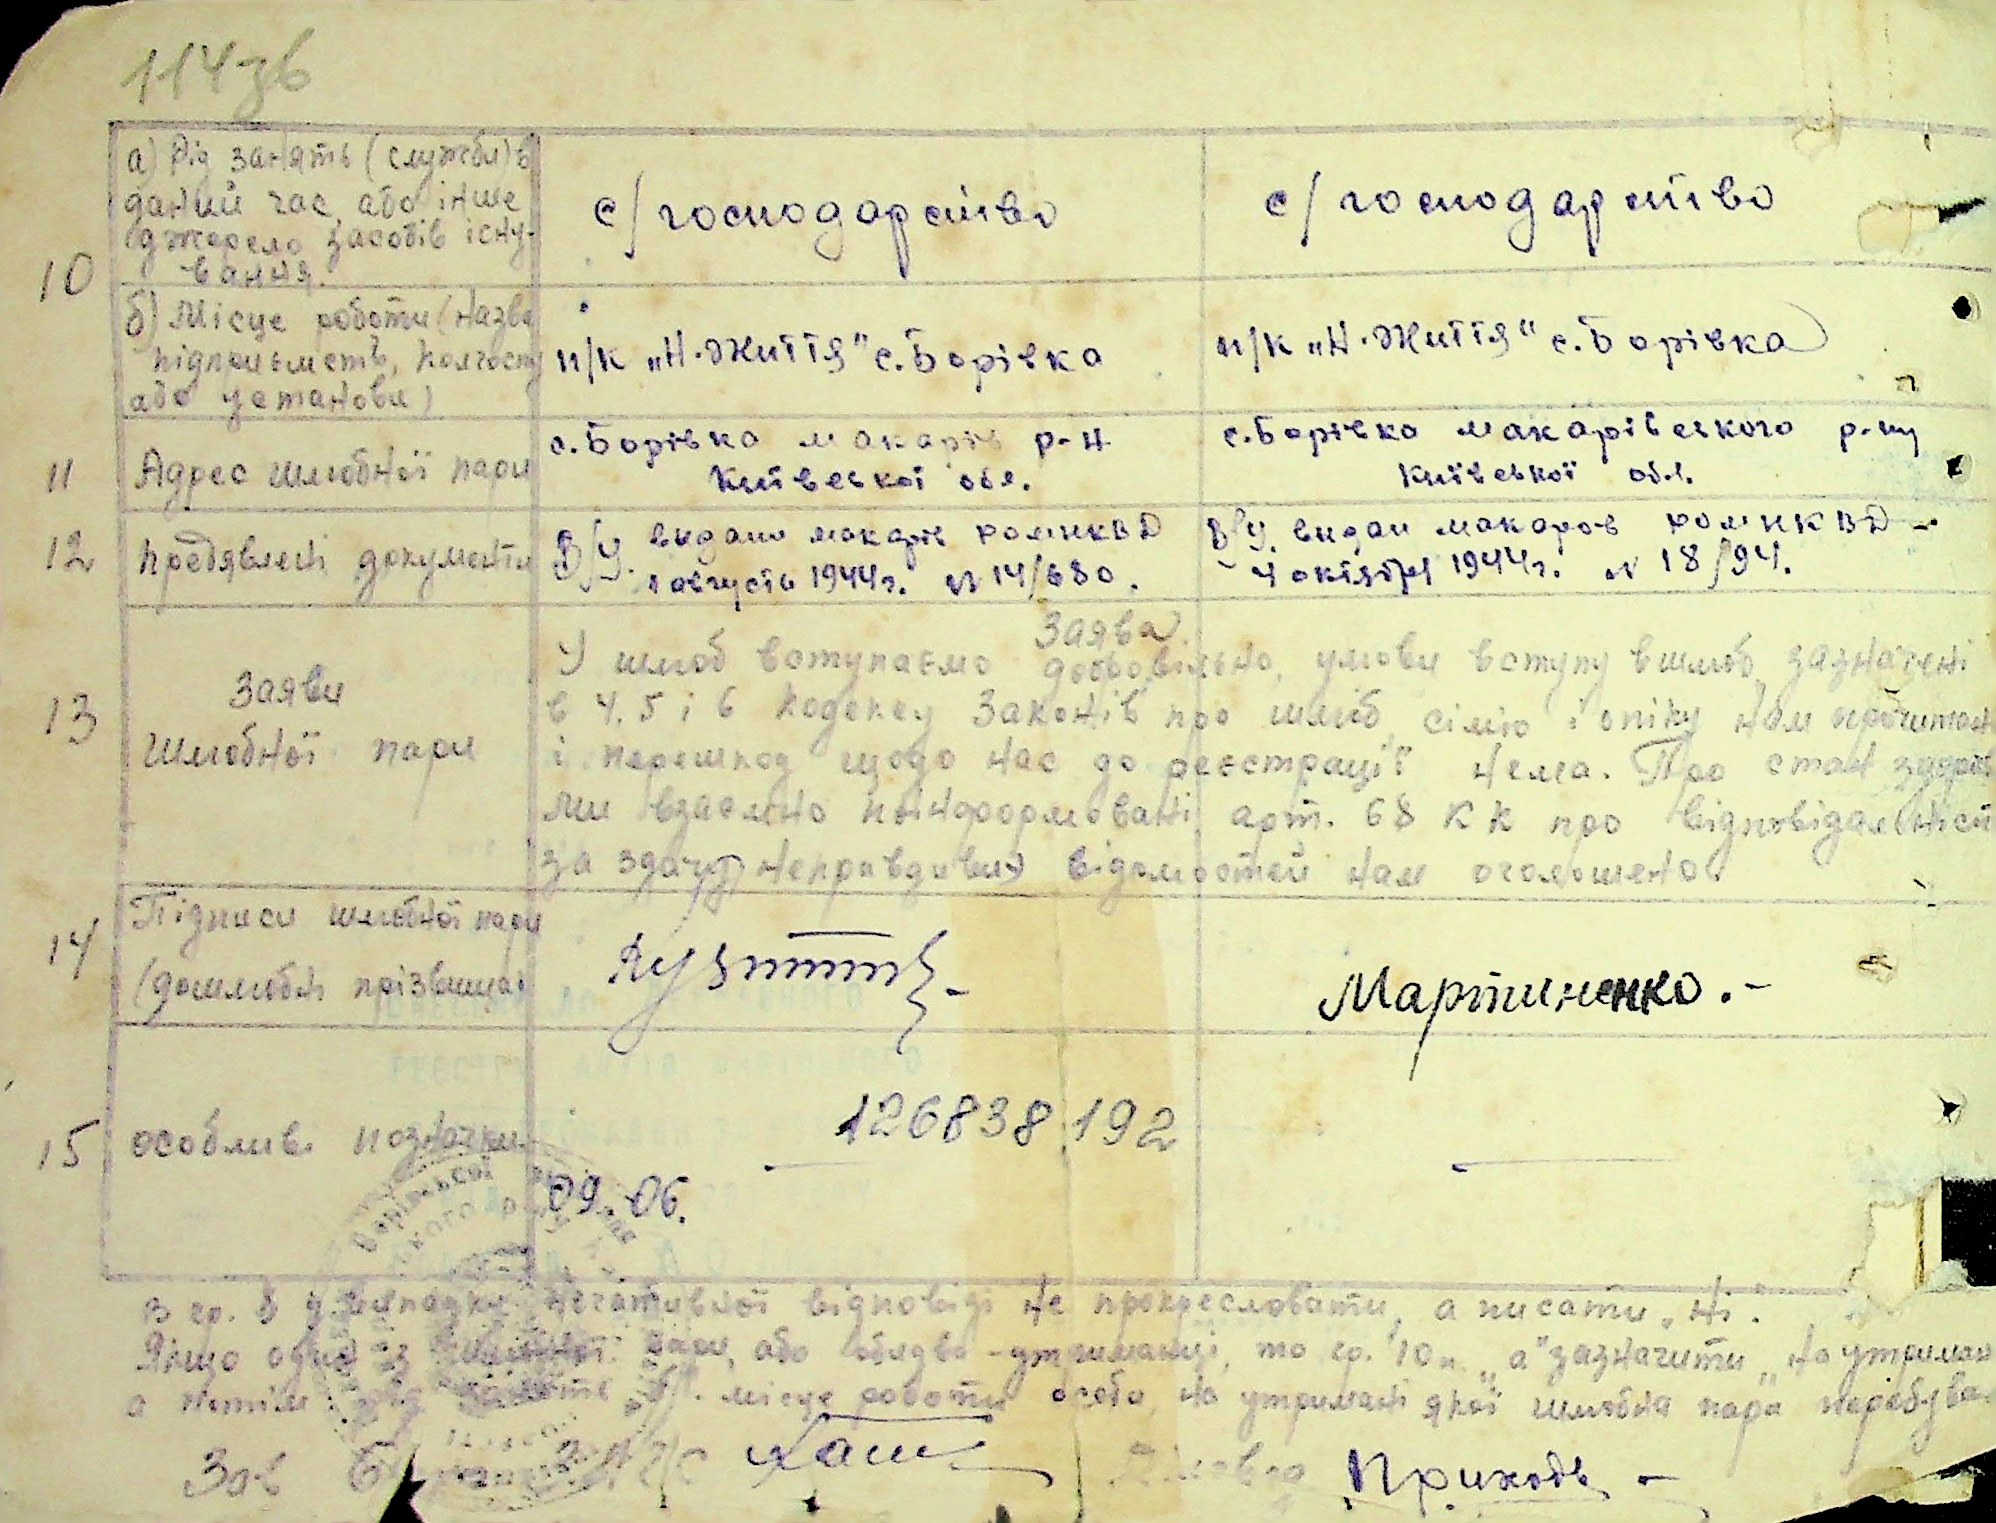 114зв
10
а) Рід занять (служби) в
даний час, або інше
джерело засобів існу-
вання.
с/господарство
с/господарство
б) Місце роботи (назва
підприємств, колгоспу
або установи)
к "Н.Життя" с.Борівка
к "Н.Життя" с.Борівка
11
Адрес шлюбної пари
с.Борівка макарів р-н
Київської обл.
с.Борівка макарівського р-ну
Київської обл.
12
предявлені документи
В/У. видано макарів НКВД
1 августа 1944г. N 14/680.
В/У. видан макаров НКВД -
4 октября 1944г. N 18/94.
13
Заяви
шлюбної пари
Заява
У шлюб вступаємо добровільно, умови вступу в шлюб, зазначені
в 4. 5 і 6 Кодексу Законів про шлюб, сімю і опіку нам прочитан
і перешкод щодо нас до реєстрації нема. Про стан здоров
ми взаємно поінформовані, арт. 68 КК про відповідальніст
за здачу неправдивих відомостей нам оголошено
14
Підписи шлюбної пари
(дошлюбні прізвища)
Мартиненко.-
15
особливі позначки
126838 192
09.06.
в гр. 8 у випадку негативної відповіді не прокреслювати, а писати "ні".
Якщо один з шлюбної пари, або обидва - утриманці, то гр. 10 п. "а" зазначити "на утриман
а потім місце роботи особи, на утримані якої шлюбна пара перебува
Зав ЗАГС
Приходь -